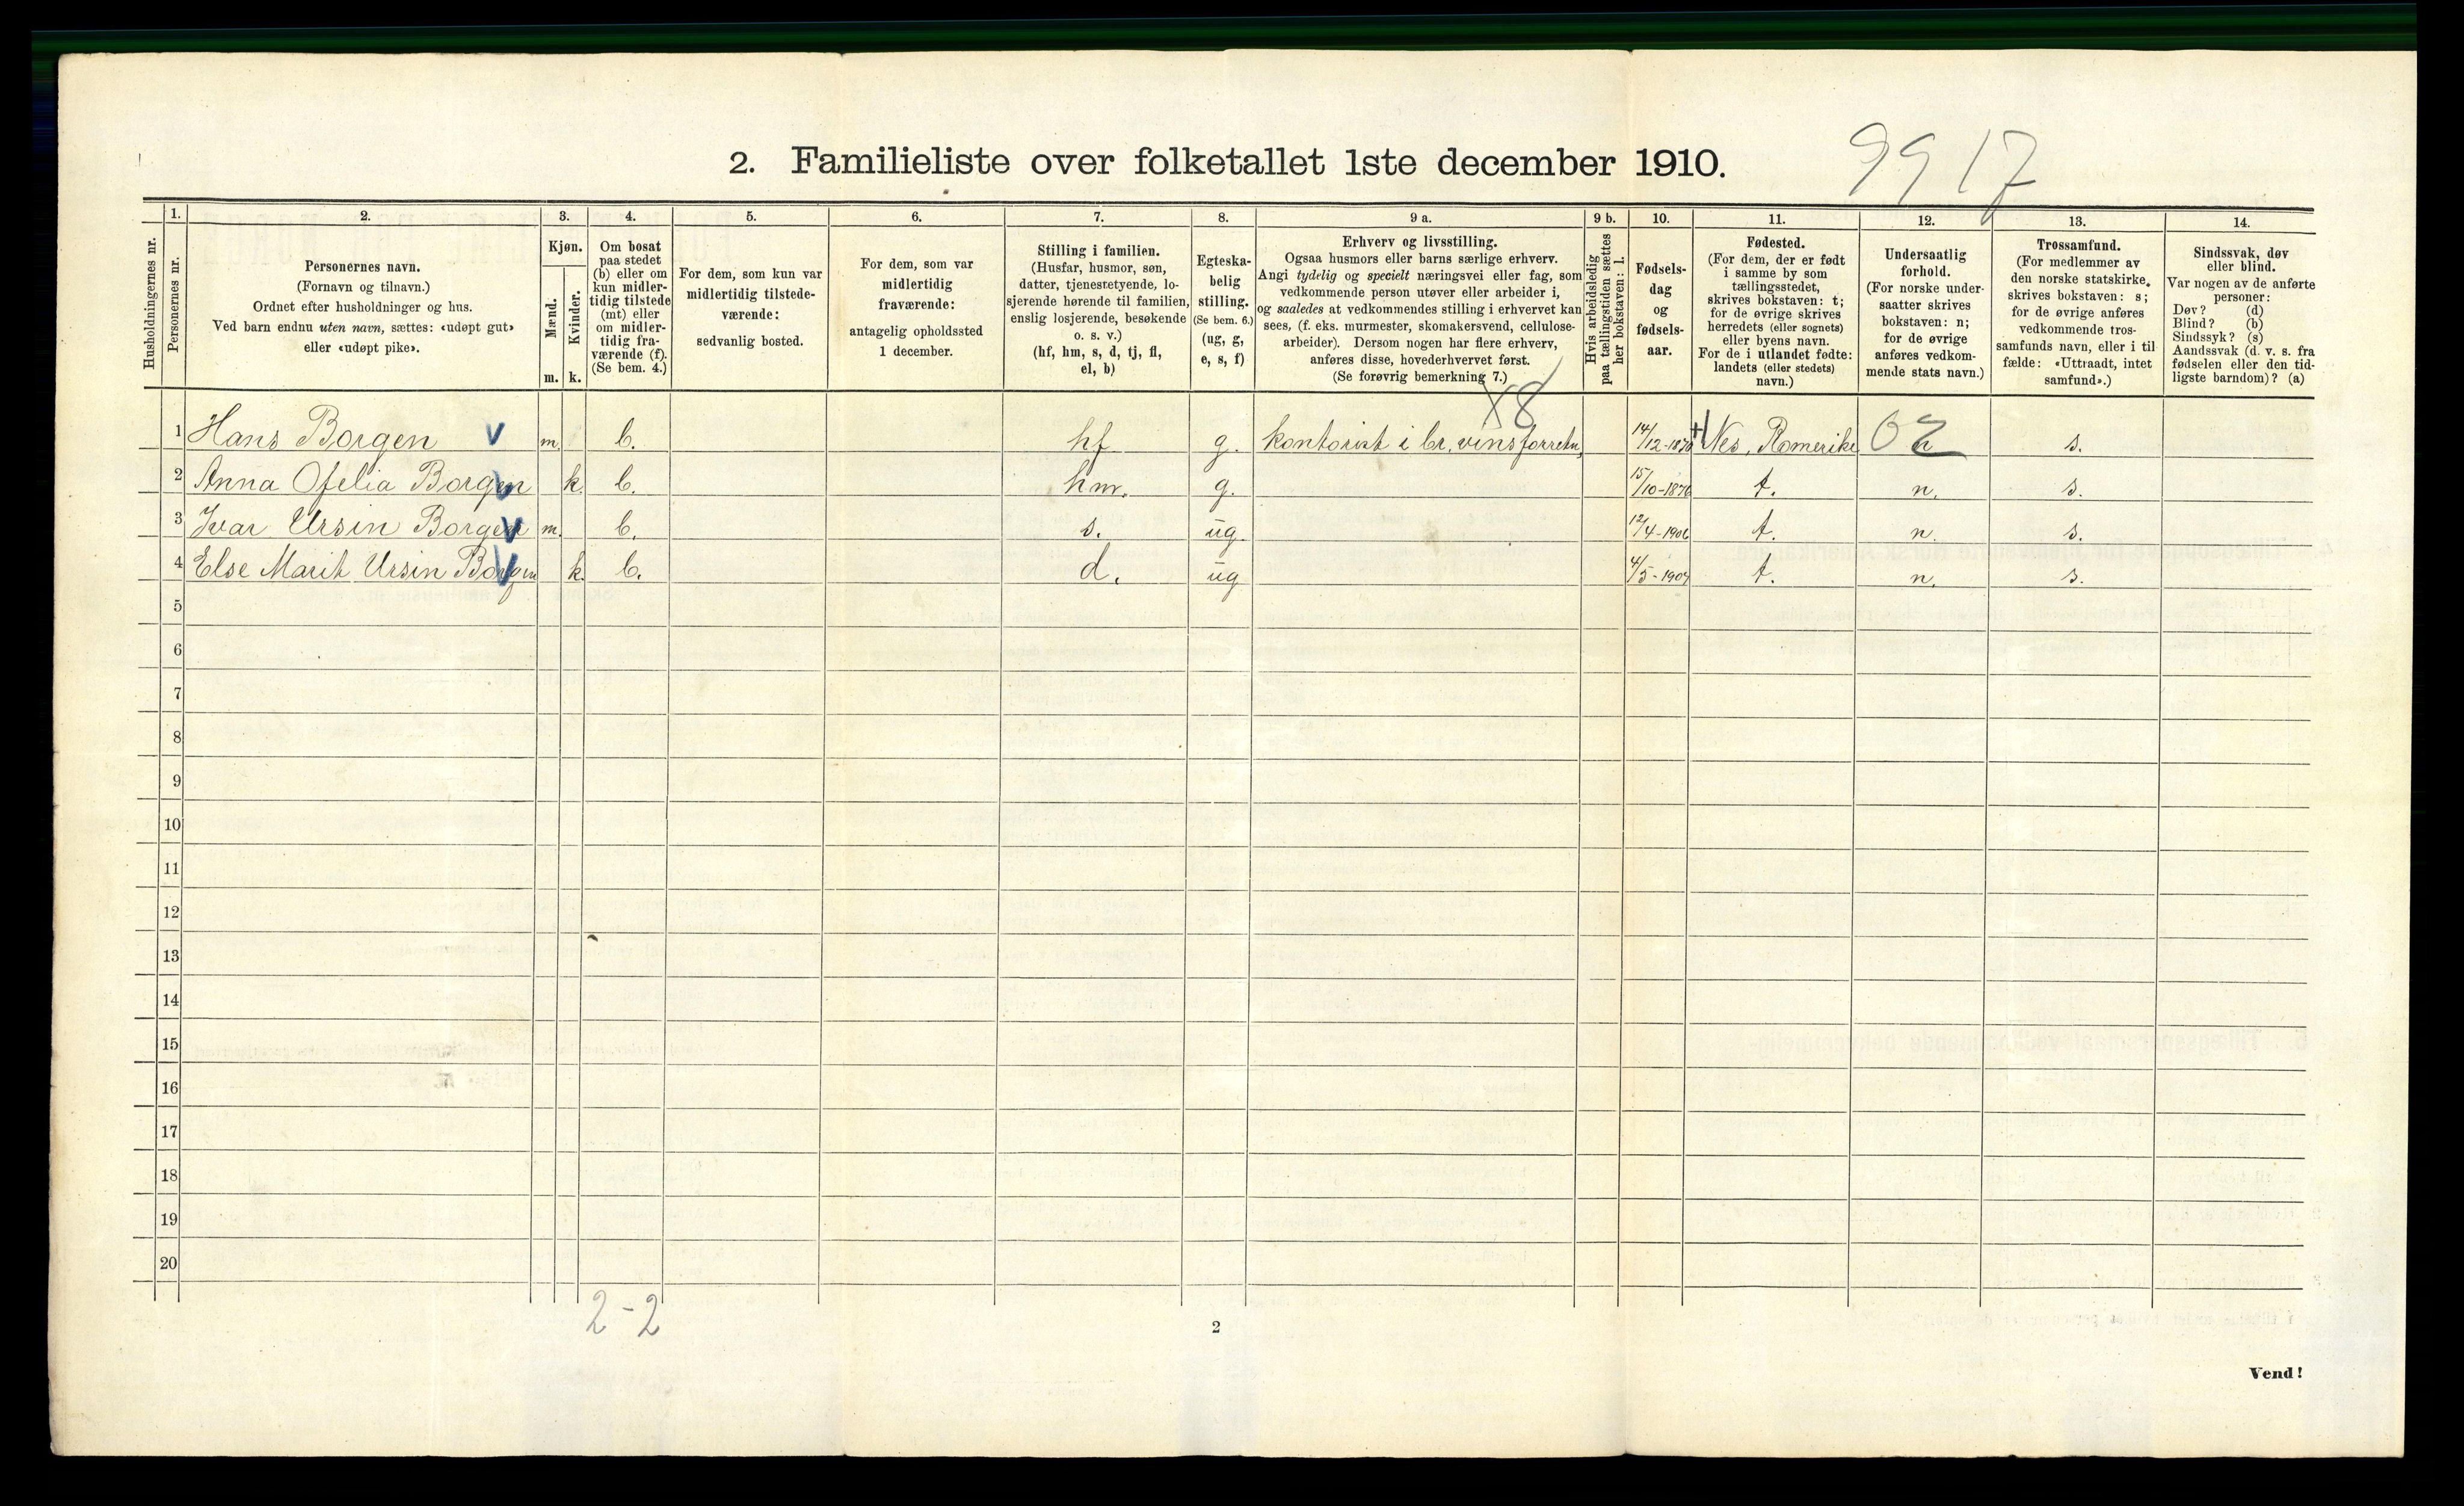 9917
2. Familieliste over folketallet 1ste december 1910.
Husholdningernes nr.
1.
Personernes nr.
2.
Personernes navn.
(Fornavn og tilnavn.)
Ordnet efter husholdninger og hus.
Ved barn endnu uten navn, sættes: «udøpt gut»
eller «udøpt pike».
3.
Kjøn.
Mænd.
Kvinder.
m. k.
4.
Om bosat
paa stedet
(b) eller om
kun midler-
tidig tilstede
(mt) eller
om midler-
tidig fra-
værende (f).
(Se bem. 4.)
5.
For dem, som kun var
midlertidig tilstede-
værende:
sedvanlig bosted.
6.
For dem, som var
midlertidig
fraværende:
antagelig opholdssted
1 december.
7.
Stilling i familien.
(Husfar, husmor, søn,
datter, tjenestetyende, lo-
sjerende hørende til familien,
enslig losjerende, besøkende
o. s. v.)
(hf, hm, s, d, tj, fl,
el, b)
8.
Egteska-
belig
stilling.
(Se bem. 6.)
(ug, g,
e, s, f)
9 a.
Erhverv og livsstilling.
Ogsaa husmors eller barns særlige erhverv.
Angi tydelig og specielt næringsvei eller fag, som
vedkommende person utøver eller arbeider i,
og saaledes at vedkommendes stilling i erhvervet kan
sees, (f. eks. murmester, skomakersvend, cellulose-
arbeider). Dersom nogen har flere erhverv,
anføres disse, hovederhvervet først.
(Se forøvrig bemerkning 7.)
9 b.
Hvis arbeidsledig
paa tællingstiden sættes
her bokstaven: l.
10.
Fødsels-
dag
og
fødsels-
aar.
11.
Fødested.
(For dem, der er født
i samme by som
tællingsstedet,
skrives bokstaven: t;
for de øvrige skrives
herredets (eller sognets)
eller byens navn.
For de i utlandet fødte:
landets (eller stedets)
navn.)
12.
Undersaatlig
forhold.
(For norske under-
saatter skrives
bokstaven: n;
for de øvrige
anføres vedkom-
mende stats navn.)
13.
Trossamfund.
(For medlemmer av
den norske statskirke,
skrives bokstaven: s;
for de øvrige anføres
vedkommende tros-
samfunds navn, eller i til-
fælde: «Uttraadt, intet
samfund».)
14.
Sindssvak, døv
eller blind.
Var nogen av de anførte
personer:
Døv? (d)
Blind? (b)
Sindssyk? (s)
Aandssvak (d. v. s. fra
fødselen eller den tid-
ligste barndom)? (a)
X8
1 Hans Borgen V m. b. hf g. kontorist i br. vinsforretn. 14/12-1870 + Nes, Romerike n s.
2 Anna Ofelia Borgen V k. b. hm. g. 15/10-1876 t. n. s.
3 Ivar Ursin Borgen V m. b. s. ug. 12/4-1906 t. n. s.
4 Else Marit Ursin Borgen V k. b. d. ug 4/5-1907 t. n. s.
5
6
7
8
9
10
11
12
13
14
15
16
17
18
19
20
2-2
2
Vend!